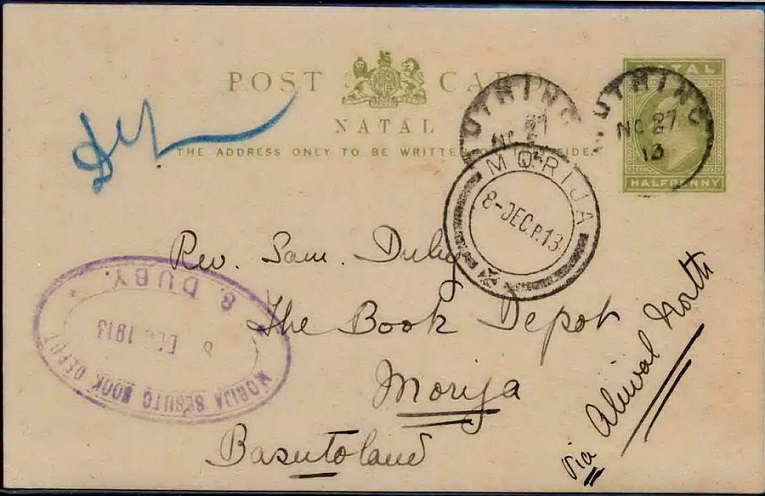 POST CARD
NATAL
THE ADDRESS ONLY TO BE WRITTEN
NATAL
HALFPENNY
UTHING
27
13
UTHING
27
13
MORIJA
8-DEC.P.13
Rev. Sam. Duby
The Book Depot
Morija
Basutoland
via Aliwal North
S. DUBY.
8 DEC 1913
MORIJA SESUTO BOOK DEPOT